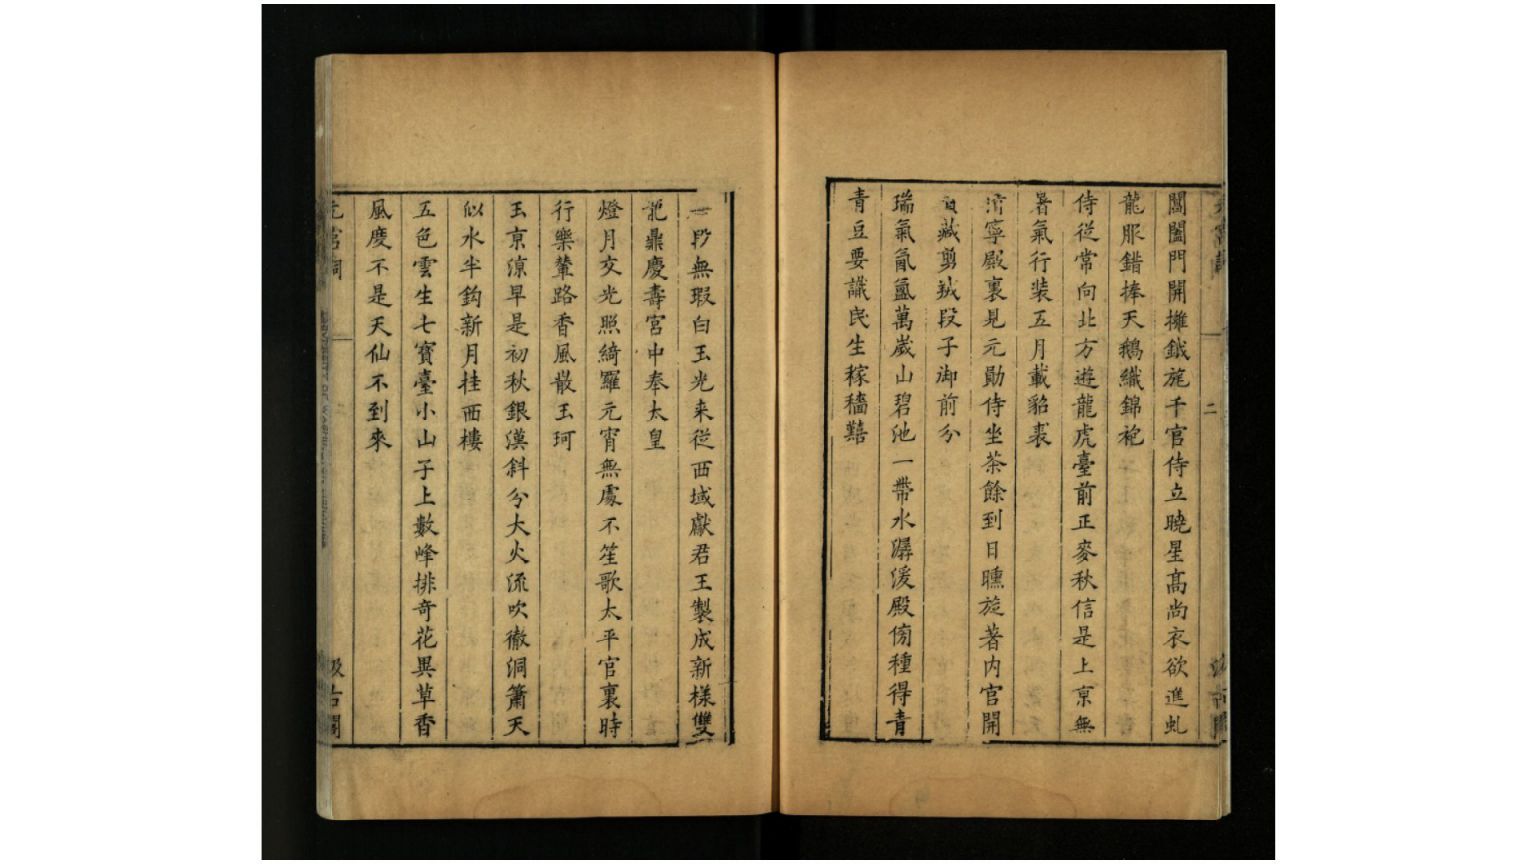 閶闔門開擁鉞旄千官侍立曉星高尚衣欲進虬
龍服錯捧天鵝織錦袍
侍從常向北方遊龍虎臺前正麥秋信是上京無
暑氣行裝五月載貂裘
清寧殿裏見元勛侍坐茶餘到日曛旋著内官開
藏剪絨段子御前分
瑞氣氤氳萬歲山碧池一帶水潺湲殿傍種得青
青豆要識民生稼穡艱
一段無瑕白玉光来從西域獻君王製成新樣雙
龍鼎慶壽宮中奉太皇
燈月交光照綺羅元宵無處不笙歌太平官裏時
行樂輦路香風散玉珂
玉京涼早是初秋銀漢斜分大火流吹徹洞簫天
似水半鈎新月桂西樓
五色雲生七寳臺小山子上數峰排奇花異草香
風度不是天仙不到來
元宮詞
二
汲古閣